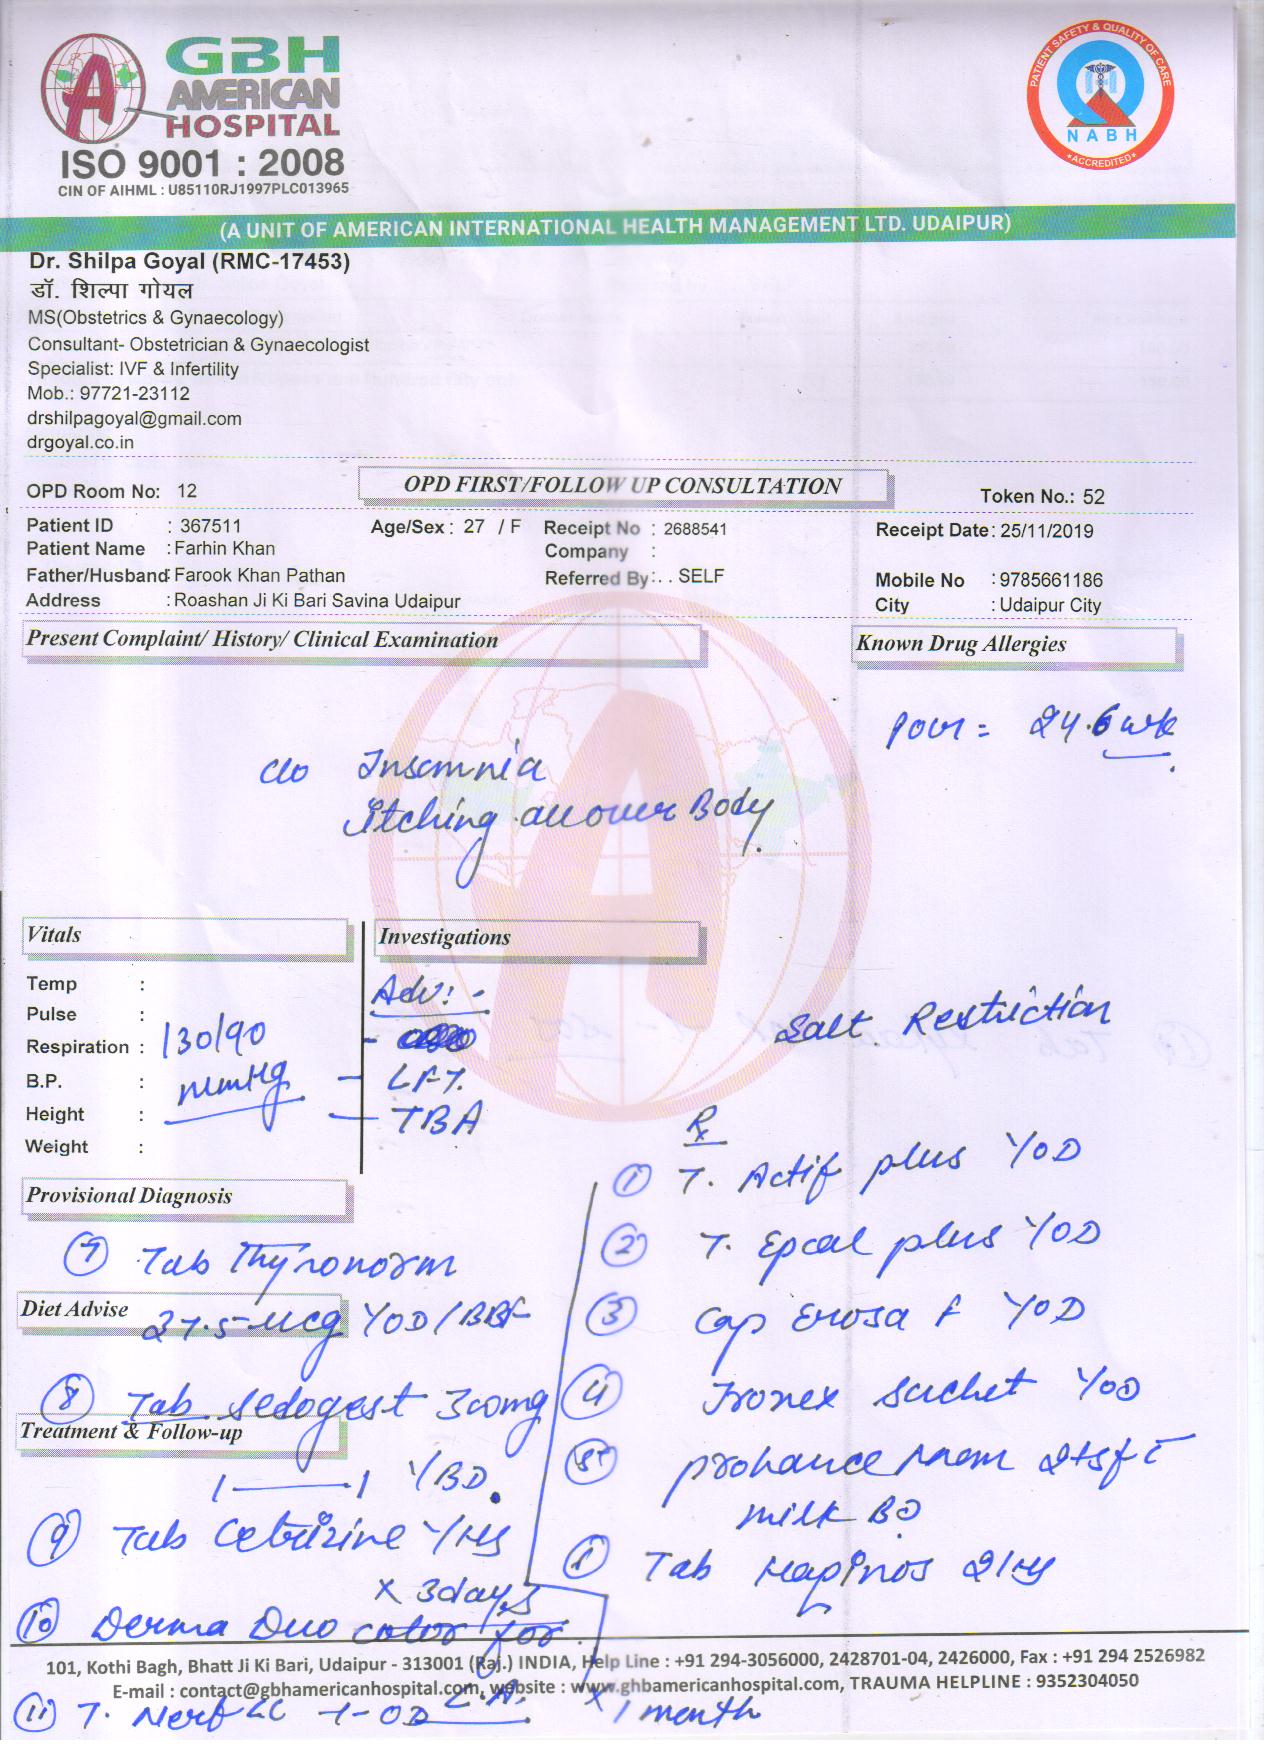 GBH
AMERICAN
HOSPITAL
ISO 9001 : 2008
CIN OF AIHML : U85110RJ1997PLC013965
PATIENT SAFETY & QUALITY OF CARE
NABH
ACCREDITED
(A UNIT OF AMERICAN INTERNATIONAL HEALTH MANAGEMENT LTD. UDAIPUR)
Dr. Shilpa Goyal (RMC-17453)
डॉ. शिल्पा गोयल
MS(Obstetrics & Gynaecology)
Consultant- Obstetrician & Gynaecologist
Specialist: IVF & Infertility
Mob.: 97721-23112
drshilpagoyal@gmail.com
drgoyal.co.in
OPD Room No: 12 OPD FIRST/FOLLOW UP CONSULTATION Token No.: 52
Patient ID : 367511 Age/Sex : 27 / F Receipt No : 2688541 Receipt Date: 25/11/2019
Patient Name : Farhin Khan Company :
Father/Husband: Farook Khan Pathan Referred By: . . SELF Mobile No : 9785661186
Address : Roashan Ji Ki Bari Savina Udaipur City : Udaipur City
Present Complaint/ History/ Clinical Examination Known Drug Allergies
= 24.6 wk
c/o Insomnia
Itching all over Body
Vitals Investigations
Temp :
Pulse :
Respiration :
B.P. :
Height :
Weight :
130/90
mmHg
Adv: -
- LFT.
- TBA
Salt Restriction
Rx
① T. Actif plus 1/OD
② T. Epcal plus 1/OD
③ Cap F 1/OD
④ Ironex sachet 1/OD
⑤ prohance mom 2tsf c̄
milk BD
Tab 2/HS
Provisional Diagnosis
⑦ Tab Thyronorm
Diet Advise
37.5 mcg 1/OD/BBF
⑧ Tab. Sedogest 300mg
Treatment & Follow-up
1——1 1/BD.
⑨ Tab Cetrizine 1/HS
x 3days
⑩ Derma Duo for
L.A.
⑪ T. 1-OD x 1 month
101, Kothi Bagh, Bhatt Ji Ki Bari, Udaipur - 313001 (Raj.) INDIA, Help Line : +91 294-3056000, 2428701-04, 2426000, Fax : +91 294 2526982
E-mail : contact@gbhamericanhospital.com, website : www.ghbamericanhospital.com, TRAUMA HELPLINE : 9352304050